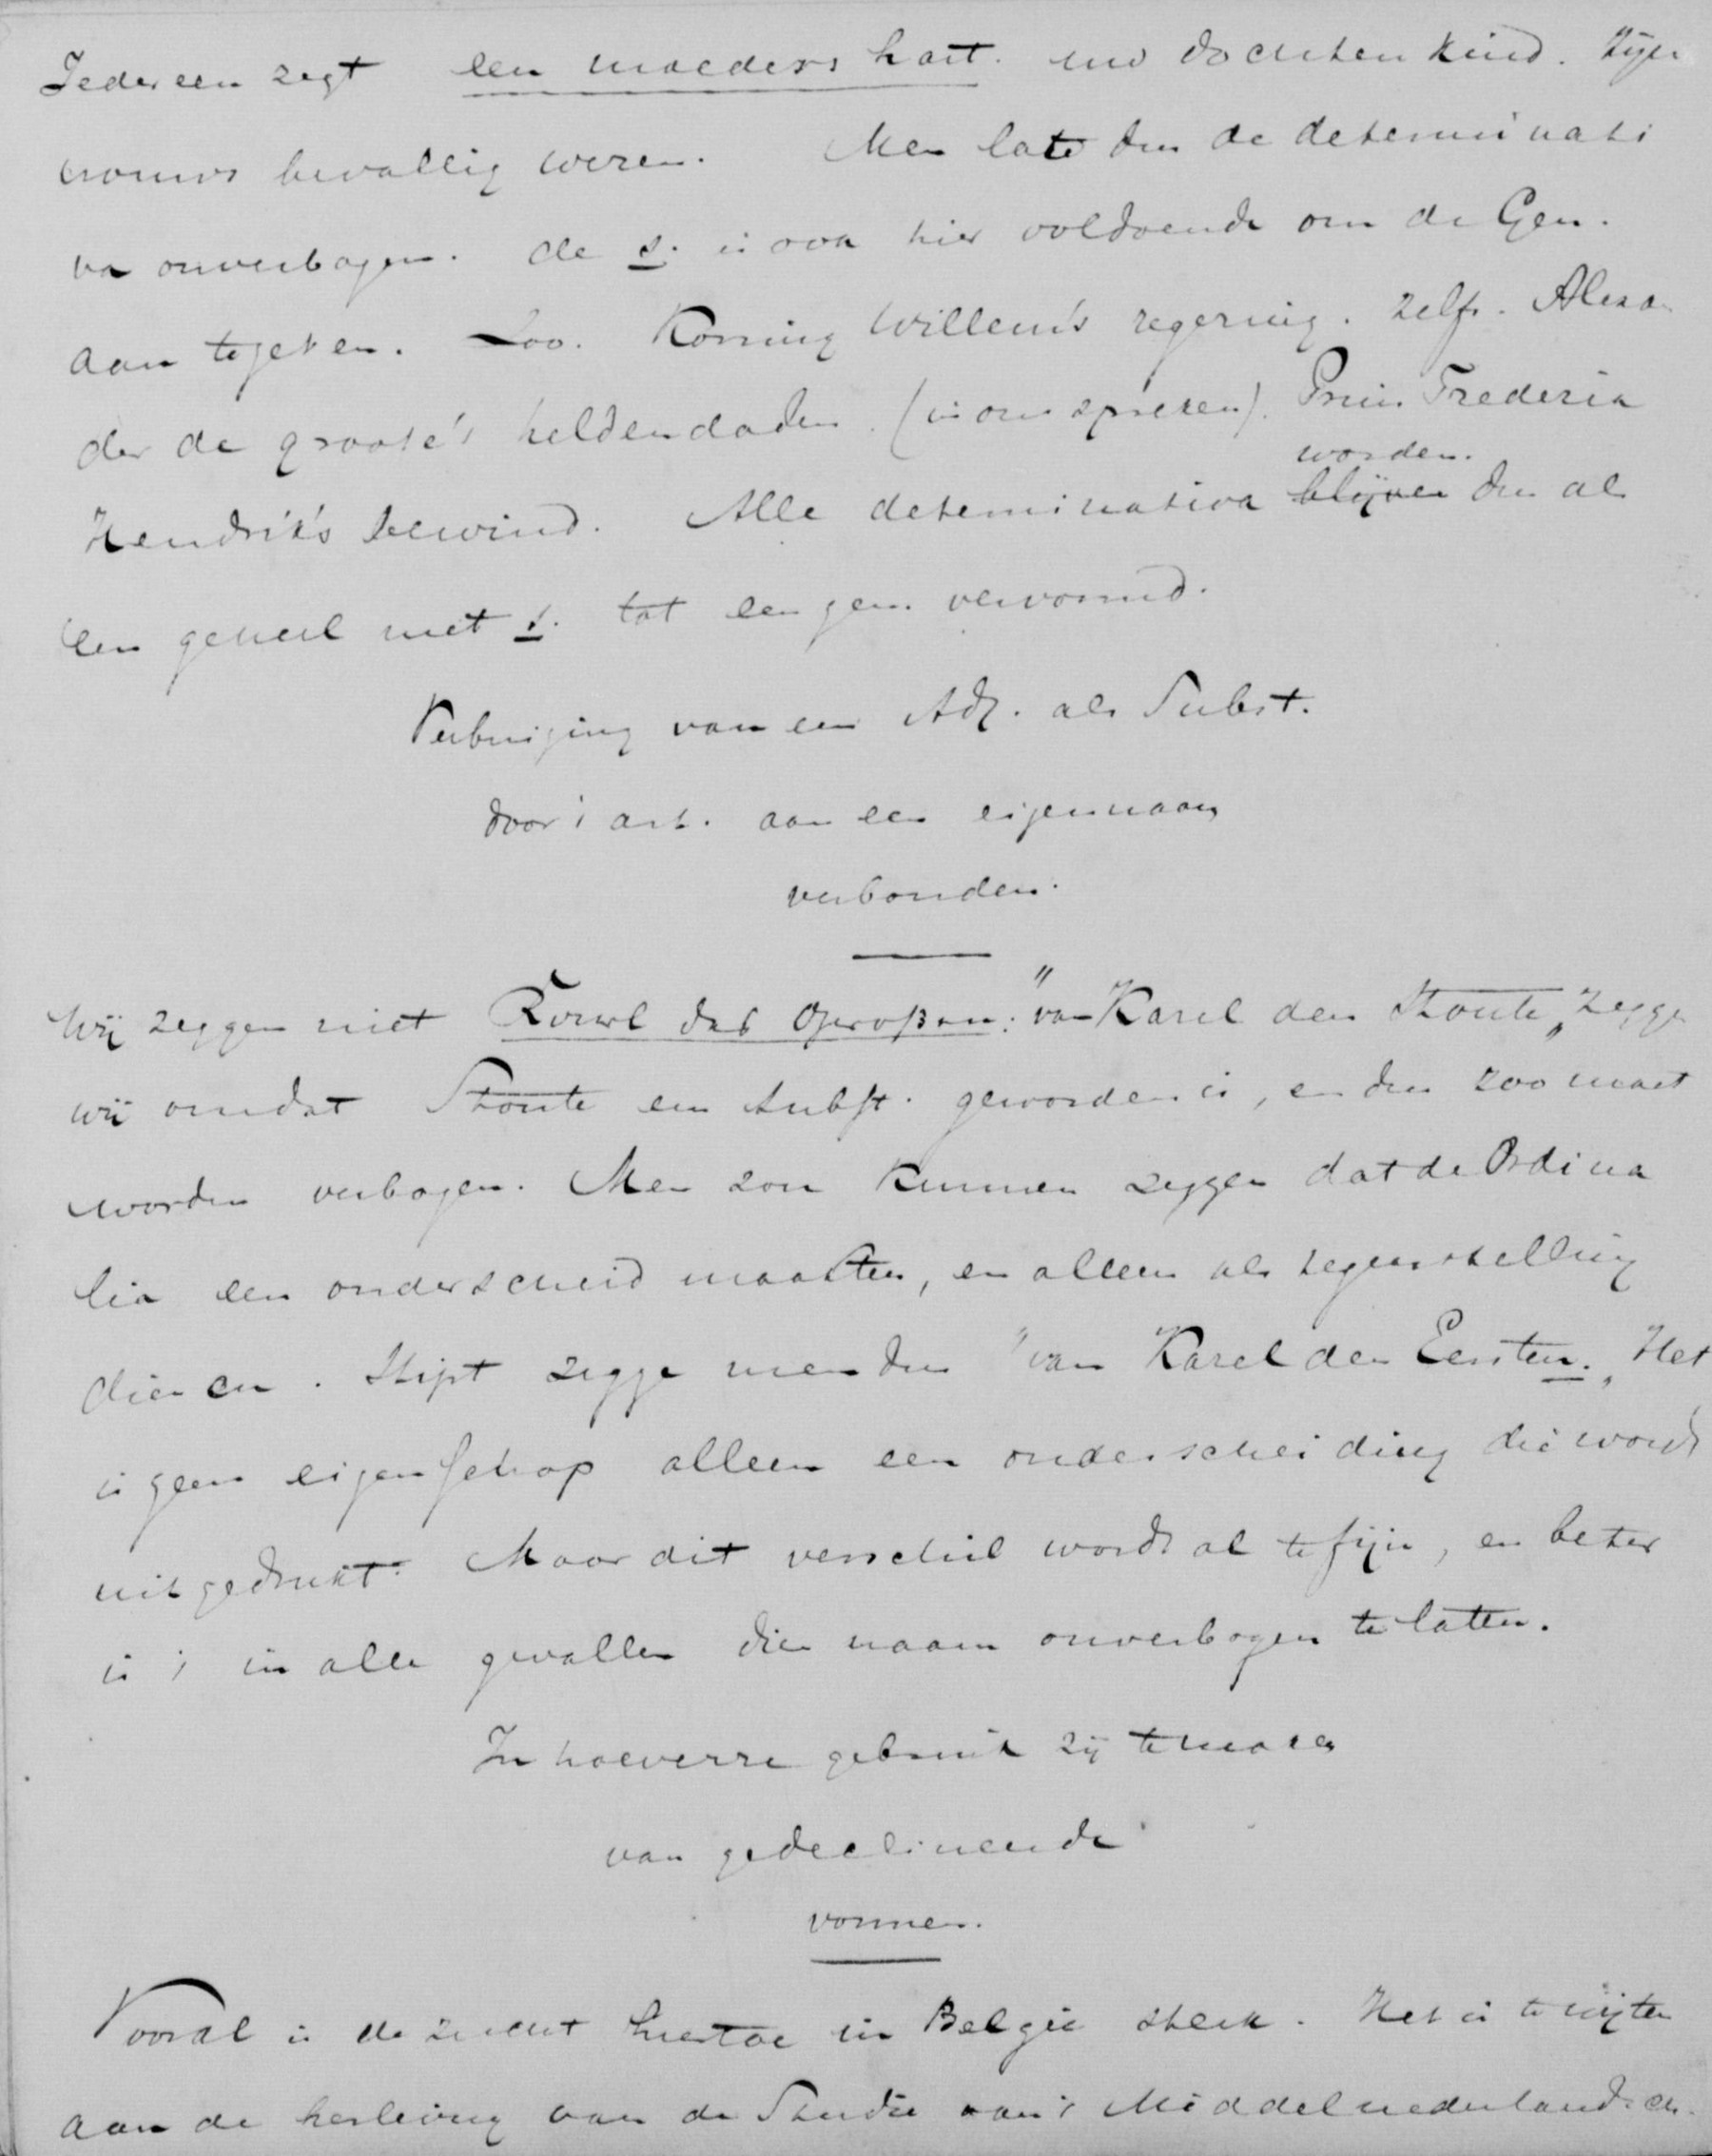 Iedereen zegt een moeders hart. uw dochters kind. Zijn
vrouws bevallig wezen. Men late dus de determinati
va onverbogen. de s. is ook hier voldoende om de Gen.
aan te geven. Zoo. Koning Willem's regering. zelfs. Alexa
der de groote's heldendaden. (in ons spreken). Prins Frederik
worden.
Hendrik's bewind. Alle determinativa blijven dus als
een geheel met s. tot een gen. vervormd.
Verbuiging van een Adj. als Subst.
door 't art. aan een eigennaam
verbonden.
Wij zeggen niet Karl des Großen: "van Karel den Stoute" zeggen
wij omdat Stoute een Subst. geworden is, en dus zoo moet
worden verbogen. Men zou kunnen zeggen dat de Ordina
lia een onderscheid maakten, en alleen als tegenstelling
dienen. Stipt zegge men dus "van Karel den Eersten." Het
is geen eigenschap alleen een onderscheiding die wordt
uitgedrukt. Maar dit verschil wordt al te fijn, en beter
is 't in alle gevallen dien naam onverbogen te laten.
In hoeverre gebruik zij te maken
van gedeclineerde
vormen.
Vooral is de zucht hiertoe in België sterk. Het is te wijten
aan de herleving van de Studie van 't Middelnederlandsch.